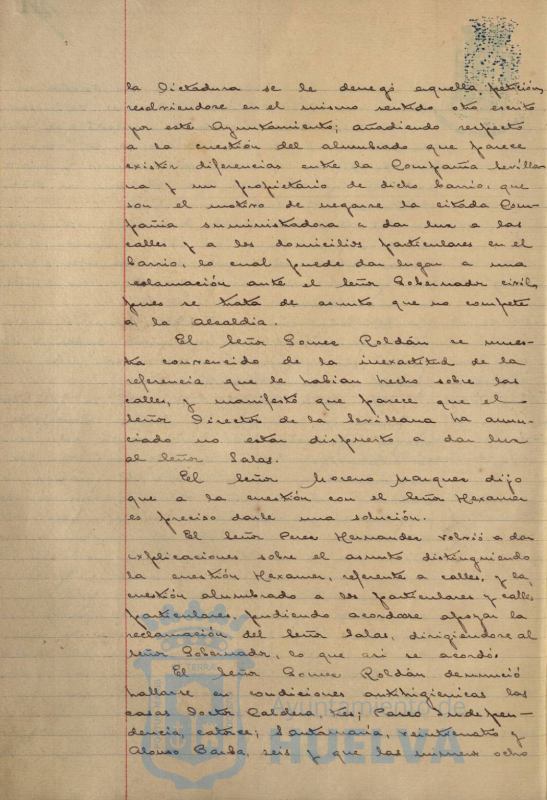 la Dictadura se le denegó aquella petición,
resolviendose en el mismo sentido otro escrito
por este Ayuntamiento; añadiendo respecto
a la cuestión del alumbrado que parece
existir diferencias entre la Compañía Sevilla-
na y un propietario de dicho barrio, que
son el motivo de negarse la citada Com-
pañía suministradora a dar luz a las
calles y a los domicilios particulares en el
barrio, lo cual puede dar lugar a una
reclamación ante el Señor Gobernador civil,
pues se trata de asunto que no compete
a la Alcaldia.
El Señor Gomez Roldán se mues-
tra convencido de la inexactitud de la
referencia que le habian hecho sobre las
calles, y manifestó que parece que el
Señor Director de la Sevillana ha anun-
ciado no estar dispuesto a dar luz
al Señor Salas.
El Señor Moreno Marquez dijo
que a la cuestión con el Señor Hexamer
es preciso darle una solución.
El Señor Perez Hernandez volvió a dar
explicaciones sobre el asunto distinguiendo
la cuestión Hexamer, referente a calles, y la
cuestión alumbrado a los particulares y calles
particulares, pudiendo acordarse apoyar la
reclamación del Señor Salas, dirigiendose al
Señor Gobernador, lo que asi se acordó.
El Señor Gomez Roldán denunció
hallarse en condiciones antihigienicas las
casas Doctor Cala, tres; Paseo Indepen-
dencia, catorce; Santamaría, veinticuatro y
Alonso Barba, seis y que las números ocho
TERRÆ
Ayuntamiento de
HUELVA